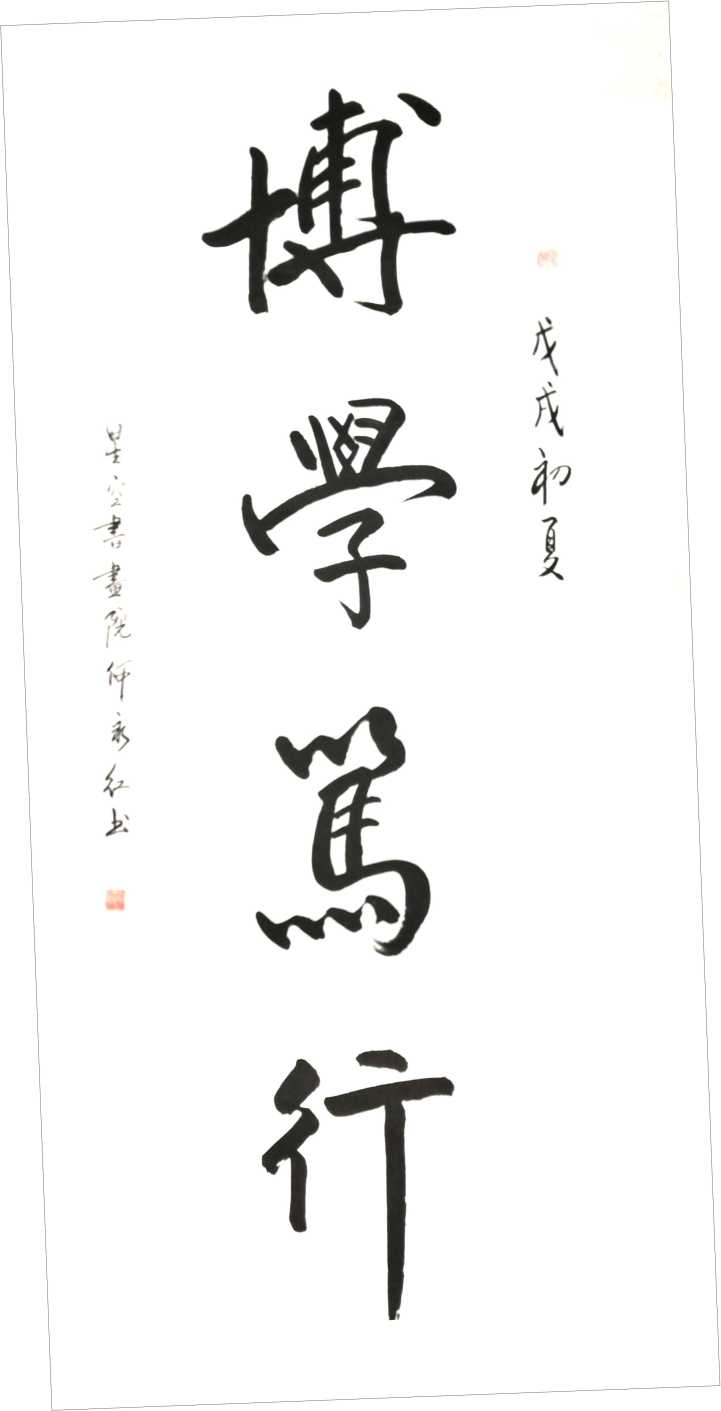 戊戌初夏
博學篤行
星空書畫院何永红书